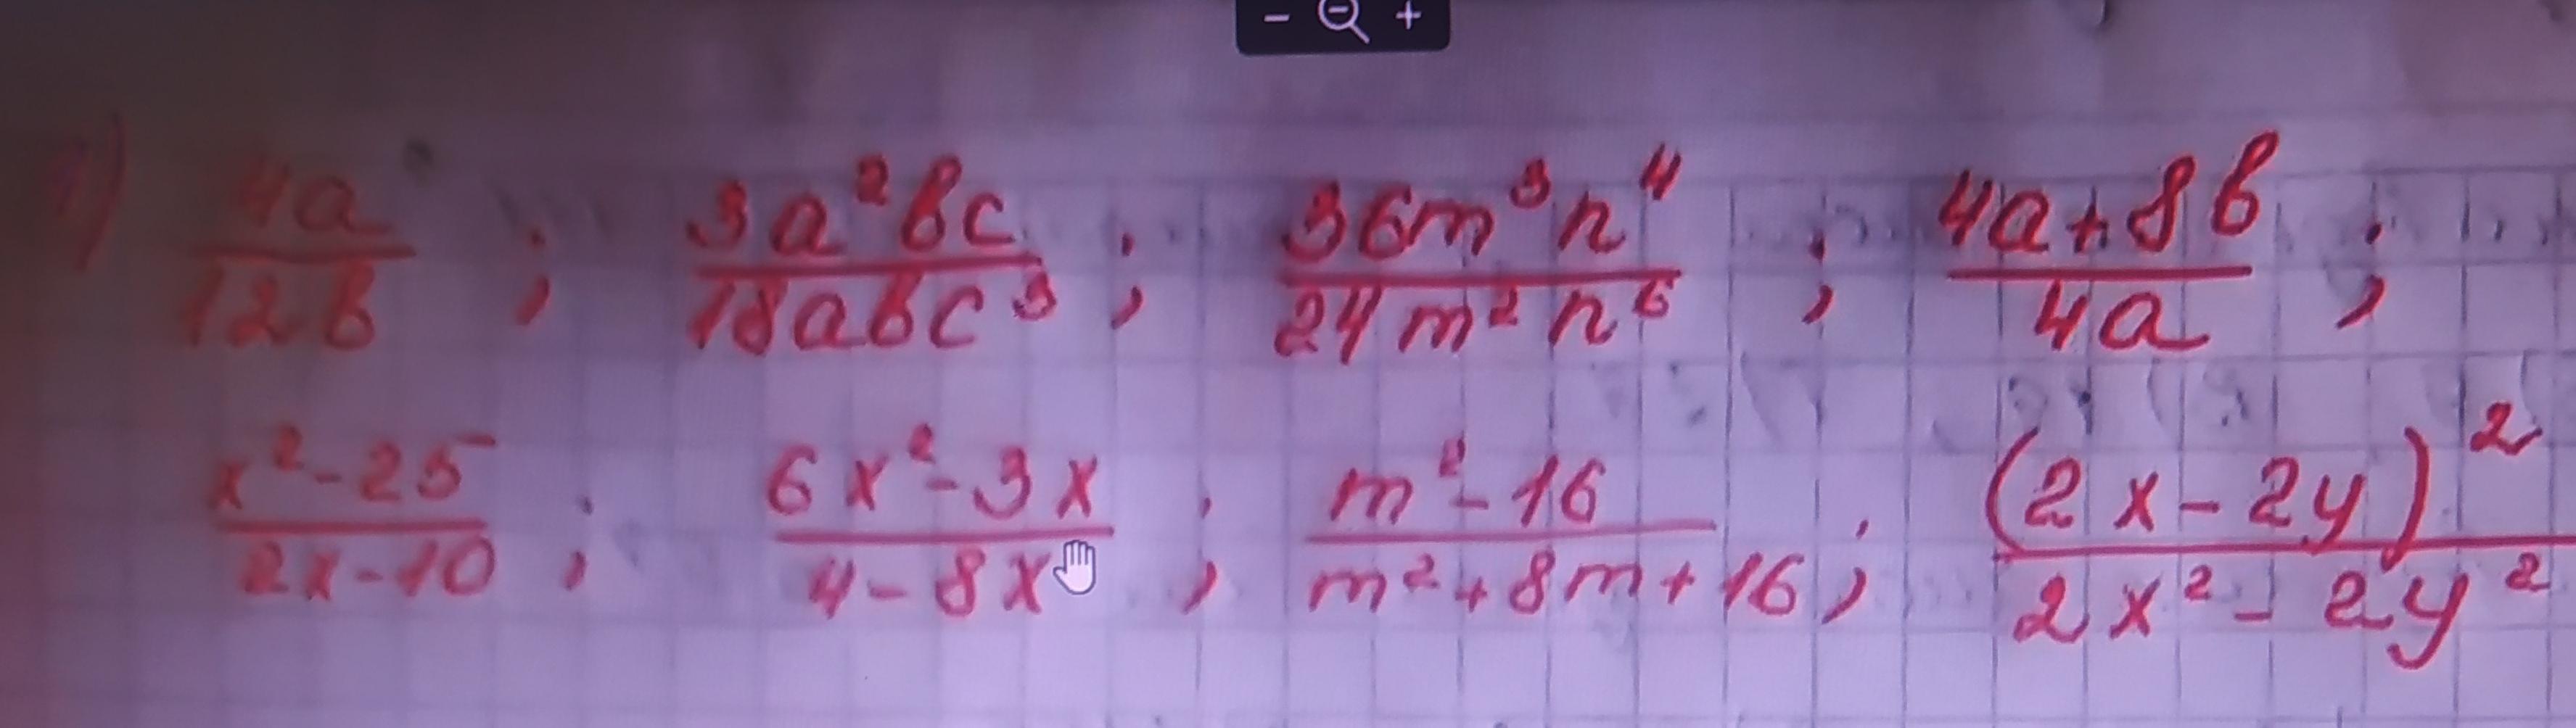 1) 4a/12b ; 3a²bc/18abc³ ; 36m³n⁴/24m²n⁶ ; 4a+8b/4a ;
x²-25/2x-10 ; 6x²-3x/4-8x ; m²-16/m²+8m+16 ; (2x-2y)²/2x²-2y²